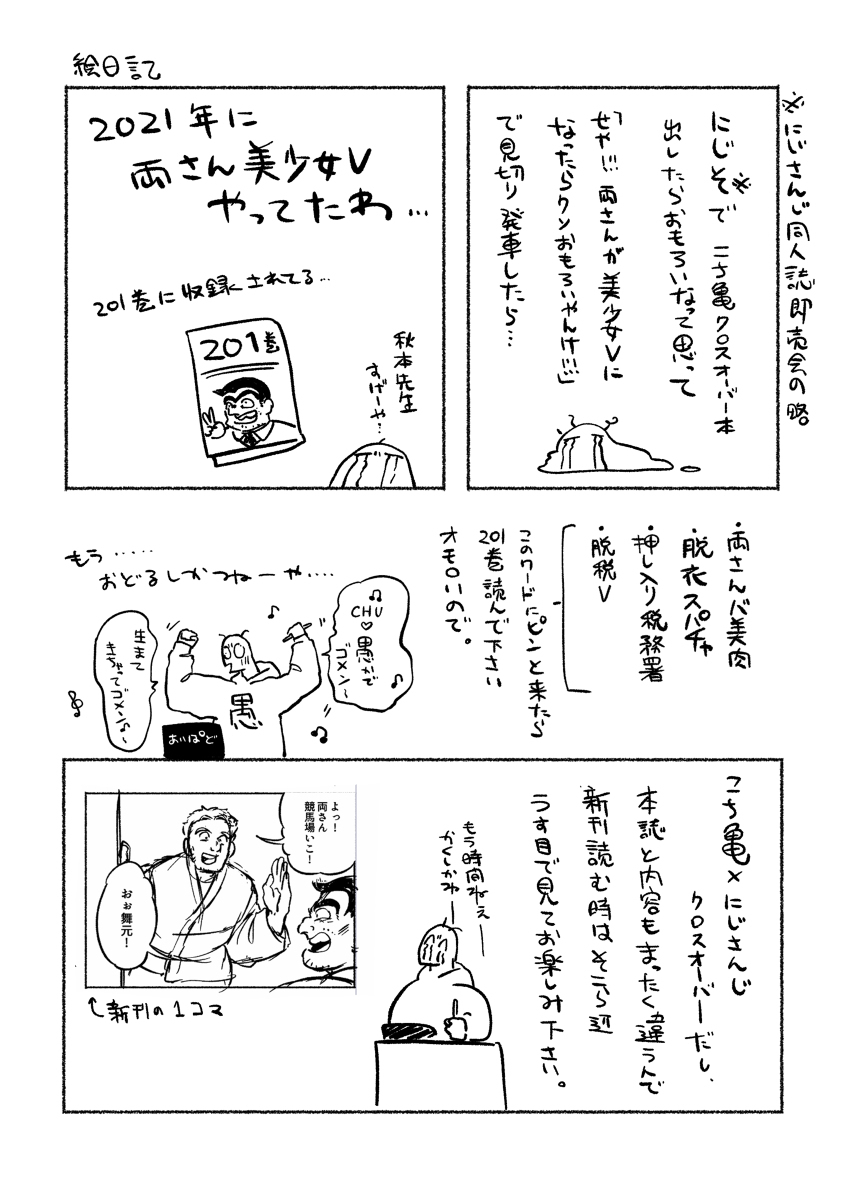 絵日記
※にじさんじ同人誌即売会の略
にじそ※で こち亀クロスオーバー本
出したらおもろいなって思って
「せや!!! 両さんが美少女Vに
なったらクソおもろいやんけ!!!」
で見切り発車したら…
2021年に
両さん美少女V
やってたわ…
201巻に収録されてる…
201巻
秋本先生
すげーや…
・両さんバ美肉
・脱衣スパチャ
・押し入り税務署
・脱税V
このワードにピンと来たら
201巻読んで下さい
オモロいので。
もう……
おどるしかつねーや….
CHU
♡愚かで
ゴメン〜
生まて
きちゃってゴメン♪〜
愚
あいぱど
こち亀×にじさんじ
クロスオーバーだし、
本誌と内容もまったく違うんで
新刊読む時はそこら辺
うす目で見てお楽しみ下さい。
もう時間ねぇ——
かくしかねー——
よっ!
両さん
競馬場いこ!
おぉ舞元!
↑新刊の1コマ